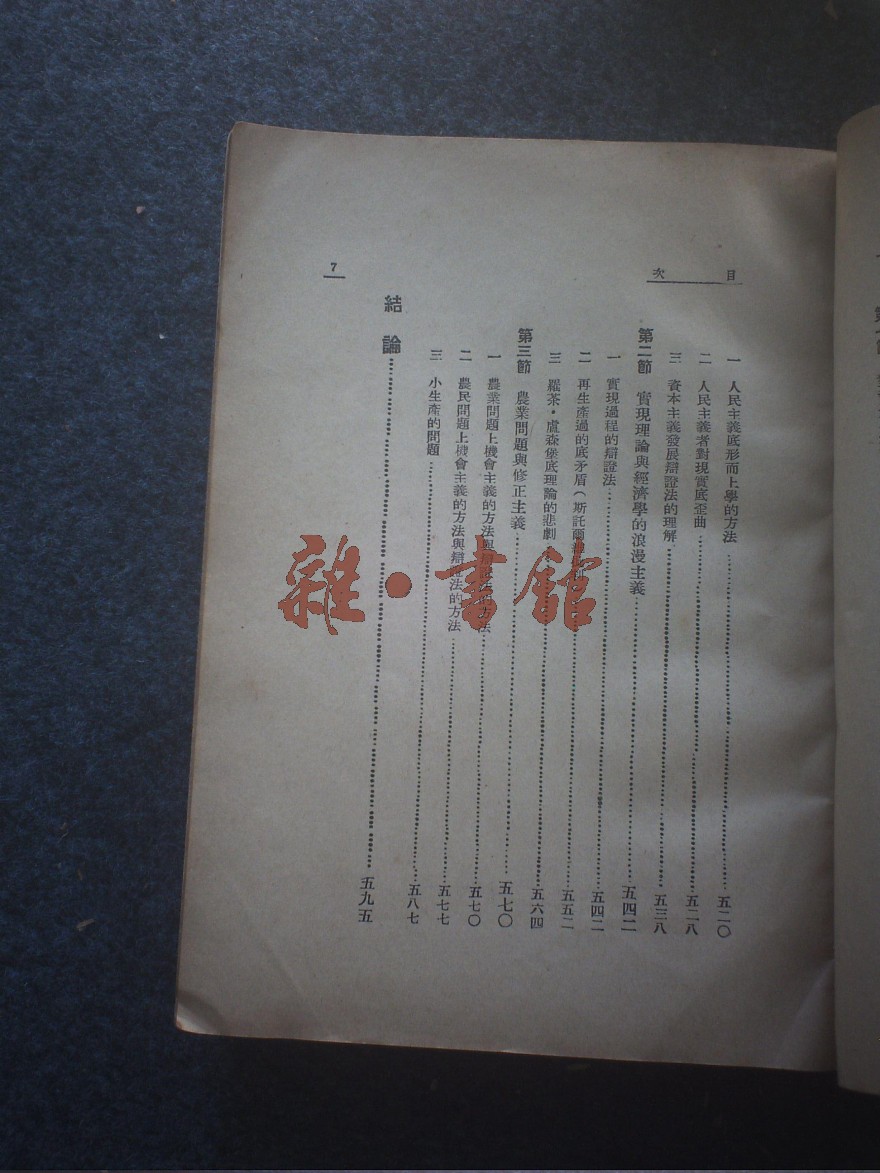 目次
一 人民主義底形而上學的方法 五二〇
二 人民主義者對現實底歪曲 五二八
三 資本主義發展辯證法的理解 五三八
第二節 實現理論與經濟學的浪漫主義 五四二
一 實現過程的辯證法 五四二
二 再生產過的底矛盾(斯託爾 五五二
三 羅茶·盧森堡底理論的悲劇 五六四
第三節 農業問題與修正主義 五七〇
一 農業問題上機會主義的方法與辯證法的方法 五七〇
二 農民問題上機會主義的方法與辯證法的方法 五七七
三 小生產的問題 五八七
結論 五九五
7
雜·書館